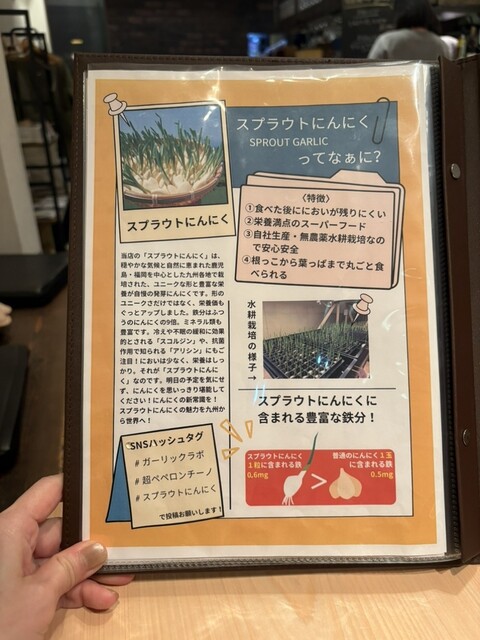 スプラウトにんにく
SPROUT GARLIC
ってなぁに?
スプラウトにんにく
〈特徴〉
①食べた後ににおいが残りにくい
②栄養満点のスーパーフード
③自社生産・無農薬水耕栽培なの
で安心安全
④根っこから葉っぱまで丸ごと食
べられる
当店の「スプラウトにんにく」は、
穏やかな気候と自然に恵まれた鹿児
島・福岡を中心とした九州各地で栽
培された、ユニークな形と豊富な栄
養が自慢の発芽にんにくです。形の
ユニークさだけではなく、栄養価も
ぐっとアップしました。鉄分はふつ
うのにんにくの9倍。ミネラル類も
豊富です。冷えや不眠の緩和に効果
的とされる「スコルジン」や、抗菌
作用で知られる「アリシン」にもご
注目!においは少なく、栄養はしっ
かり。それが「スプラウトにんに
く」なのです。明日の予定を気にせ
ず、にんにくを思いっきり堪能して
ください!にんにくの新常識を!
スプラウトにんにくの魅力を九州か
ら世界へ!
水耕栽培の様子→
スプラウトにんにくに
含まれる豊富な鉄分!
スプラウトにんにく
1粒に含まれる鉄
0.6mg
>
普通のにんにく1玉
に含まれる鉄
0.5mg
SNSハッシュタグ
#ガーリックラボ
#超ペペロンチーノ
#スプラウトにんにく
で投稿お願いします!